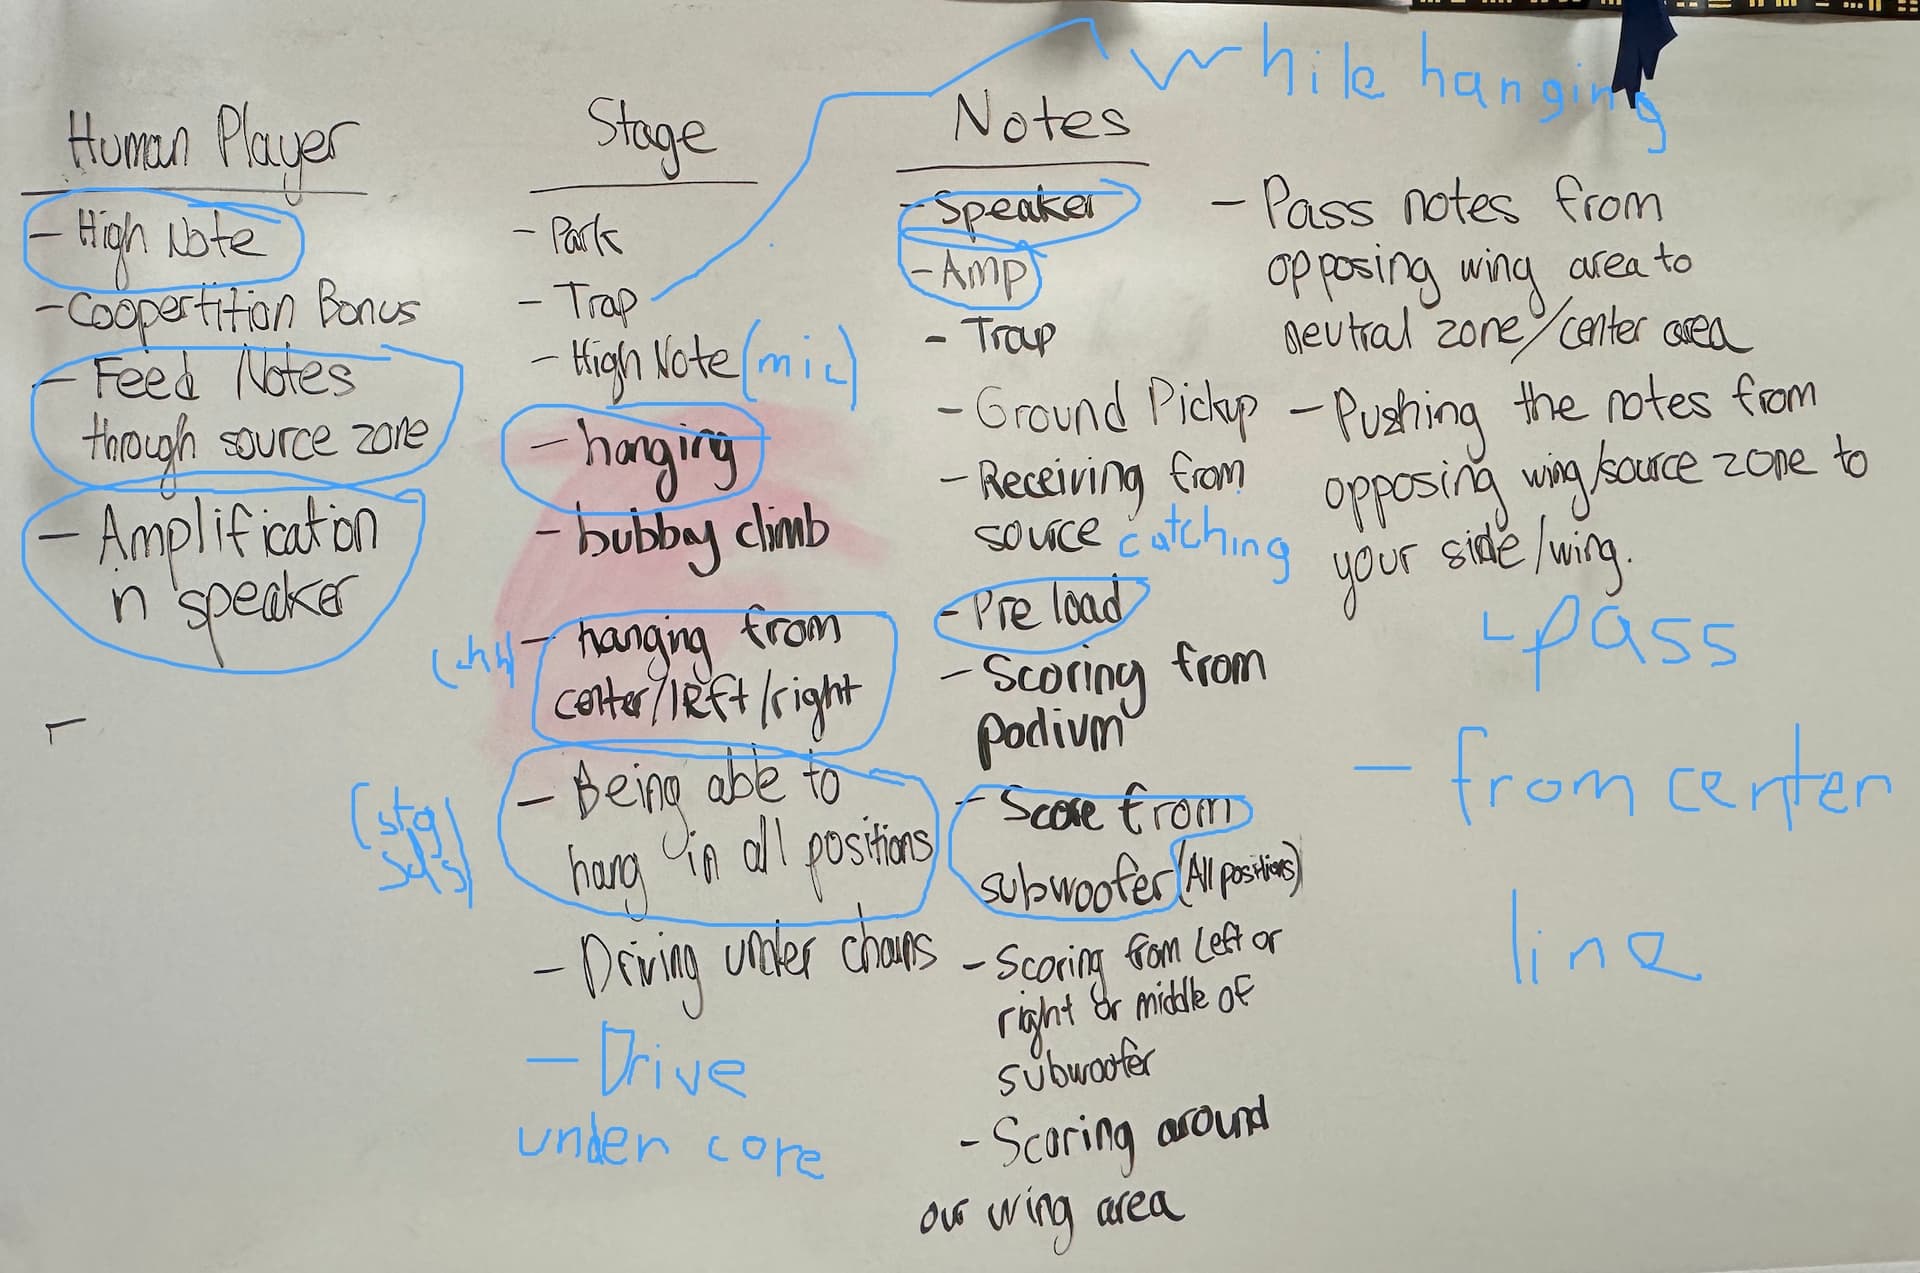 Human Player
- High Note
- Coopertition Bonus
- Feed Notes
through source zone
- Amplification
in speaker
-
Stage
- Park
- Trap
while hanging
- High Note (mic)
- hanging
- bubby climb
- hanging from
center/left/right
- Being able to
hang in all positions
- Driving under chains
- Drive
under core
Notes
- Speaker
- Amp
- Trap
- Ground Pickup
- Receiving from
source catching
- Pre load
- Scoring from
podium
- Score from
subwoofer (All positions)
- Scoring from Left or
right or middle of
subwoofer
- Scoring around
our wing area
- Pass notes from
opposing wing area to
neutral zone/center area
- Pushing the notes from
opposing wing/source zone to
your side/wing.
- pass
- from center
line